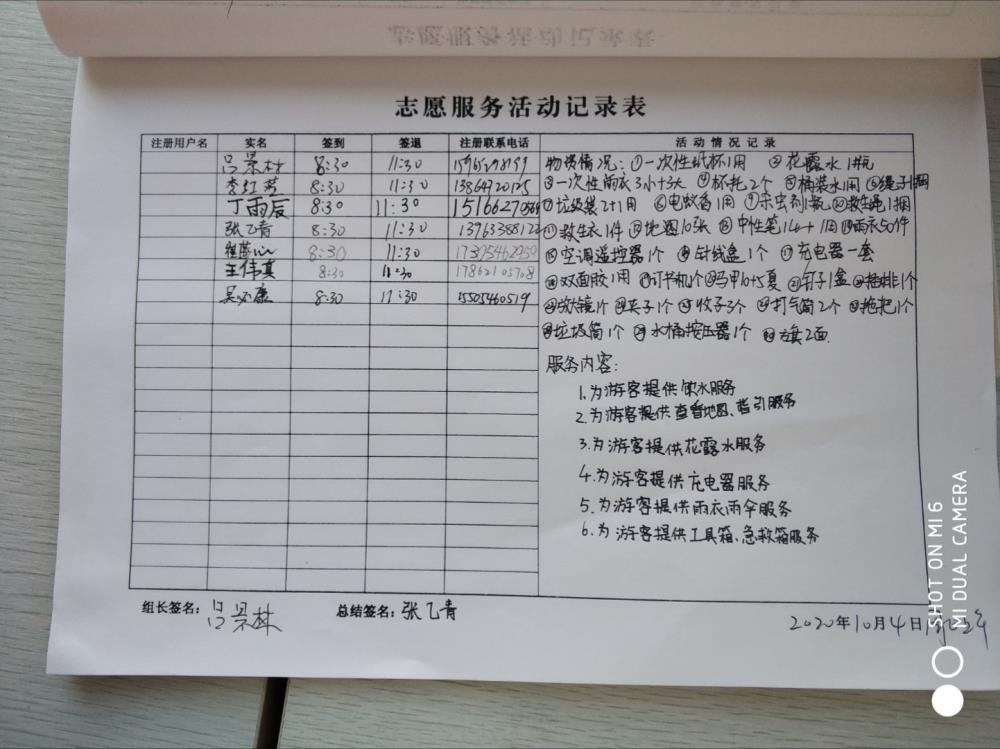 志愿服务活动记录表
注册用户名 实名 签到 签退 注册联系电话 活动情况记录
吕景林 8:30 11:30
李红英 8:30 11:30
丁雨辰 8:30 11:30
张乙青 8:30 11:30
8:30 11:30
王伟真 8:30 11:30 17862105708
吴必康 8:30 11:30 15505460519
物资情况: ①一次性纸杯1用 ②花露水1瓶
③一次性雨衣3小+3大 ④杯托2个 ⑤桶装水1用 ⑥绳子1捆
⑦垃圾袋2+1用 ⑧电蚊香1用 ⑨杀虫剂1瓶 ⑩救生绳1捆
⑪救生衣1件 ⑫地图10张 ⑬中性笔 ⑭雨衣50件
⑮空调遥控器1个 ⑯针线盒1个 ⑰充电器一套
⑱双面胶1用 ⑲订书机1个 ⑳马甲10+5夏 ㉑钉子1盒 ㉒插排1个
㉓放大镜1个 ㉔夹子1个 ㉕ 3个 ㉖打气筒2个 ㉗拖把1个
㉘垃圾筒1个 ㉙水桶按压器1个 ㉚方旗2面.
服务内容:
1.为游客提供饮水服务
2.为游客提供查看地图、指引服务
3.为游客提供花露水服务
4.为游客提供充电器服务
5.为游客提供雨衣雨伞服务
6.为游客提供工具箱、急救箱服务
组长签名: 吕景林 总结签名: 张乙青
2020年10月4日
SHOT ON MI 6
MI DUAL CAMERA